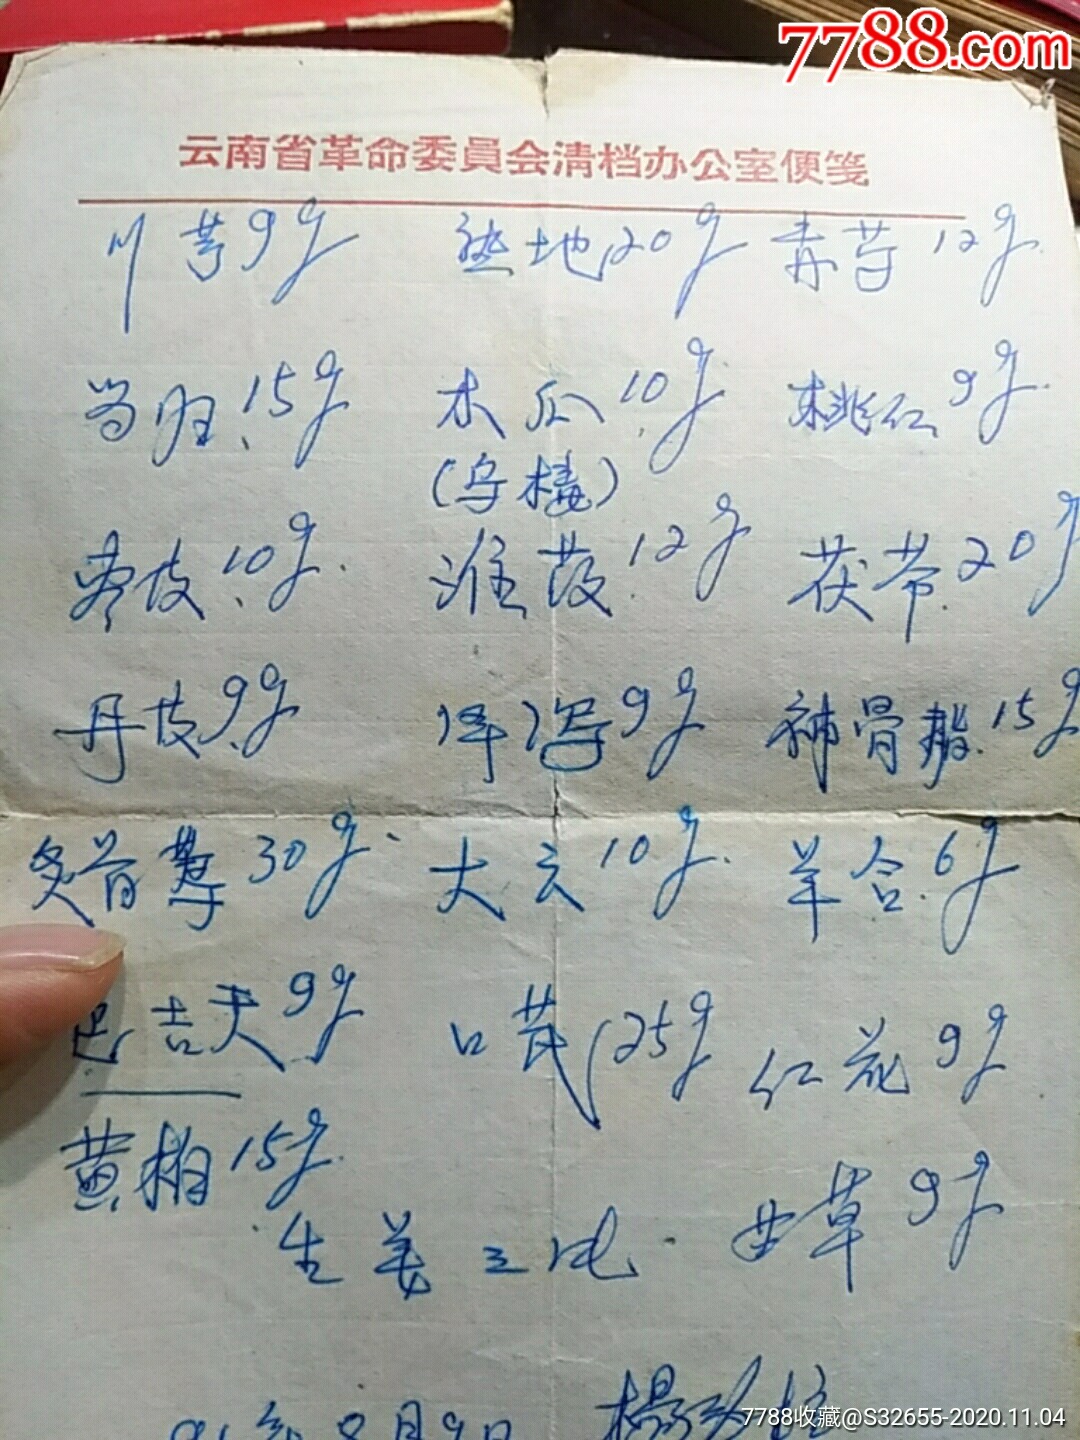 7788.com
云南省革命委員会清档办公室便笺
川芎9g 熟地20g 赤芍12g.
当归.15g 木瓜.10g 桃仁9g.
(乌梅)
枣皮.10g. 淮药.12g 茯苓.20g
丹皮9g 泽泻9g 補骨脂.15g
大云10g. 羊合.6g
巴吉天9g 口芪125g 红花9g
黄柏15g.
生姜三片. 甘草9g
7788收藏@S32655-2020.11.04